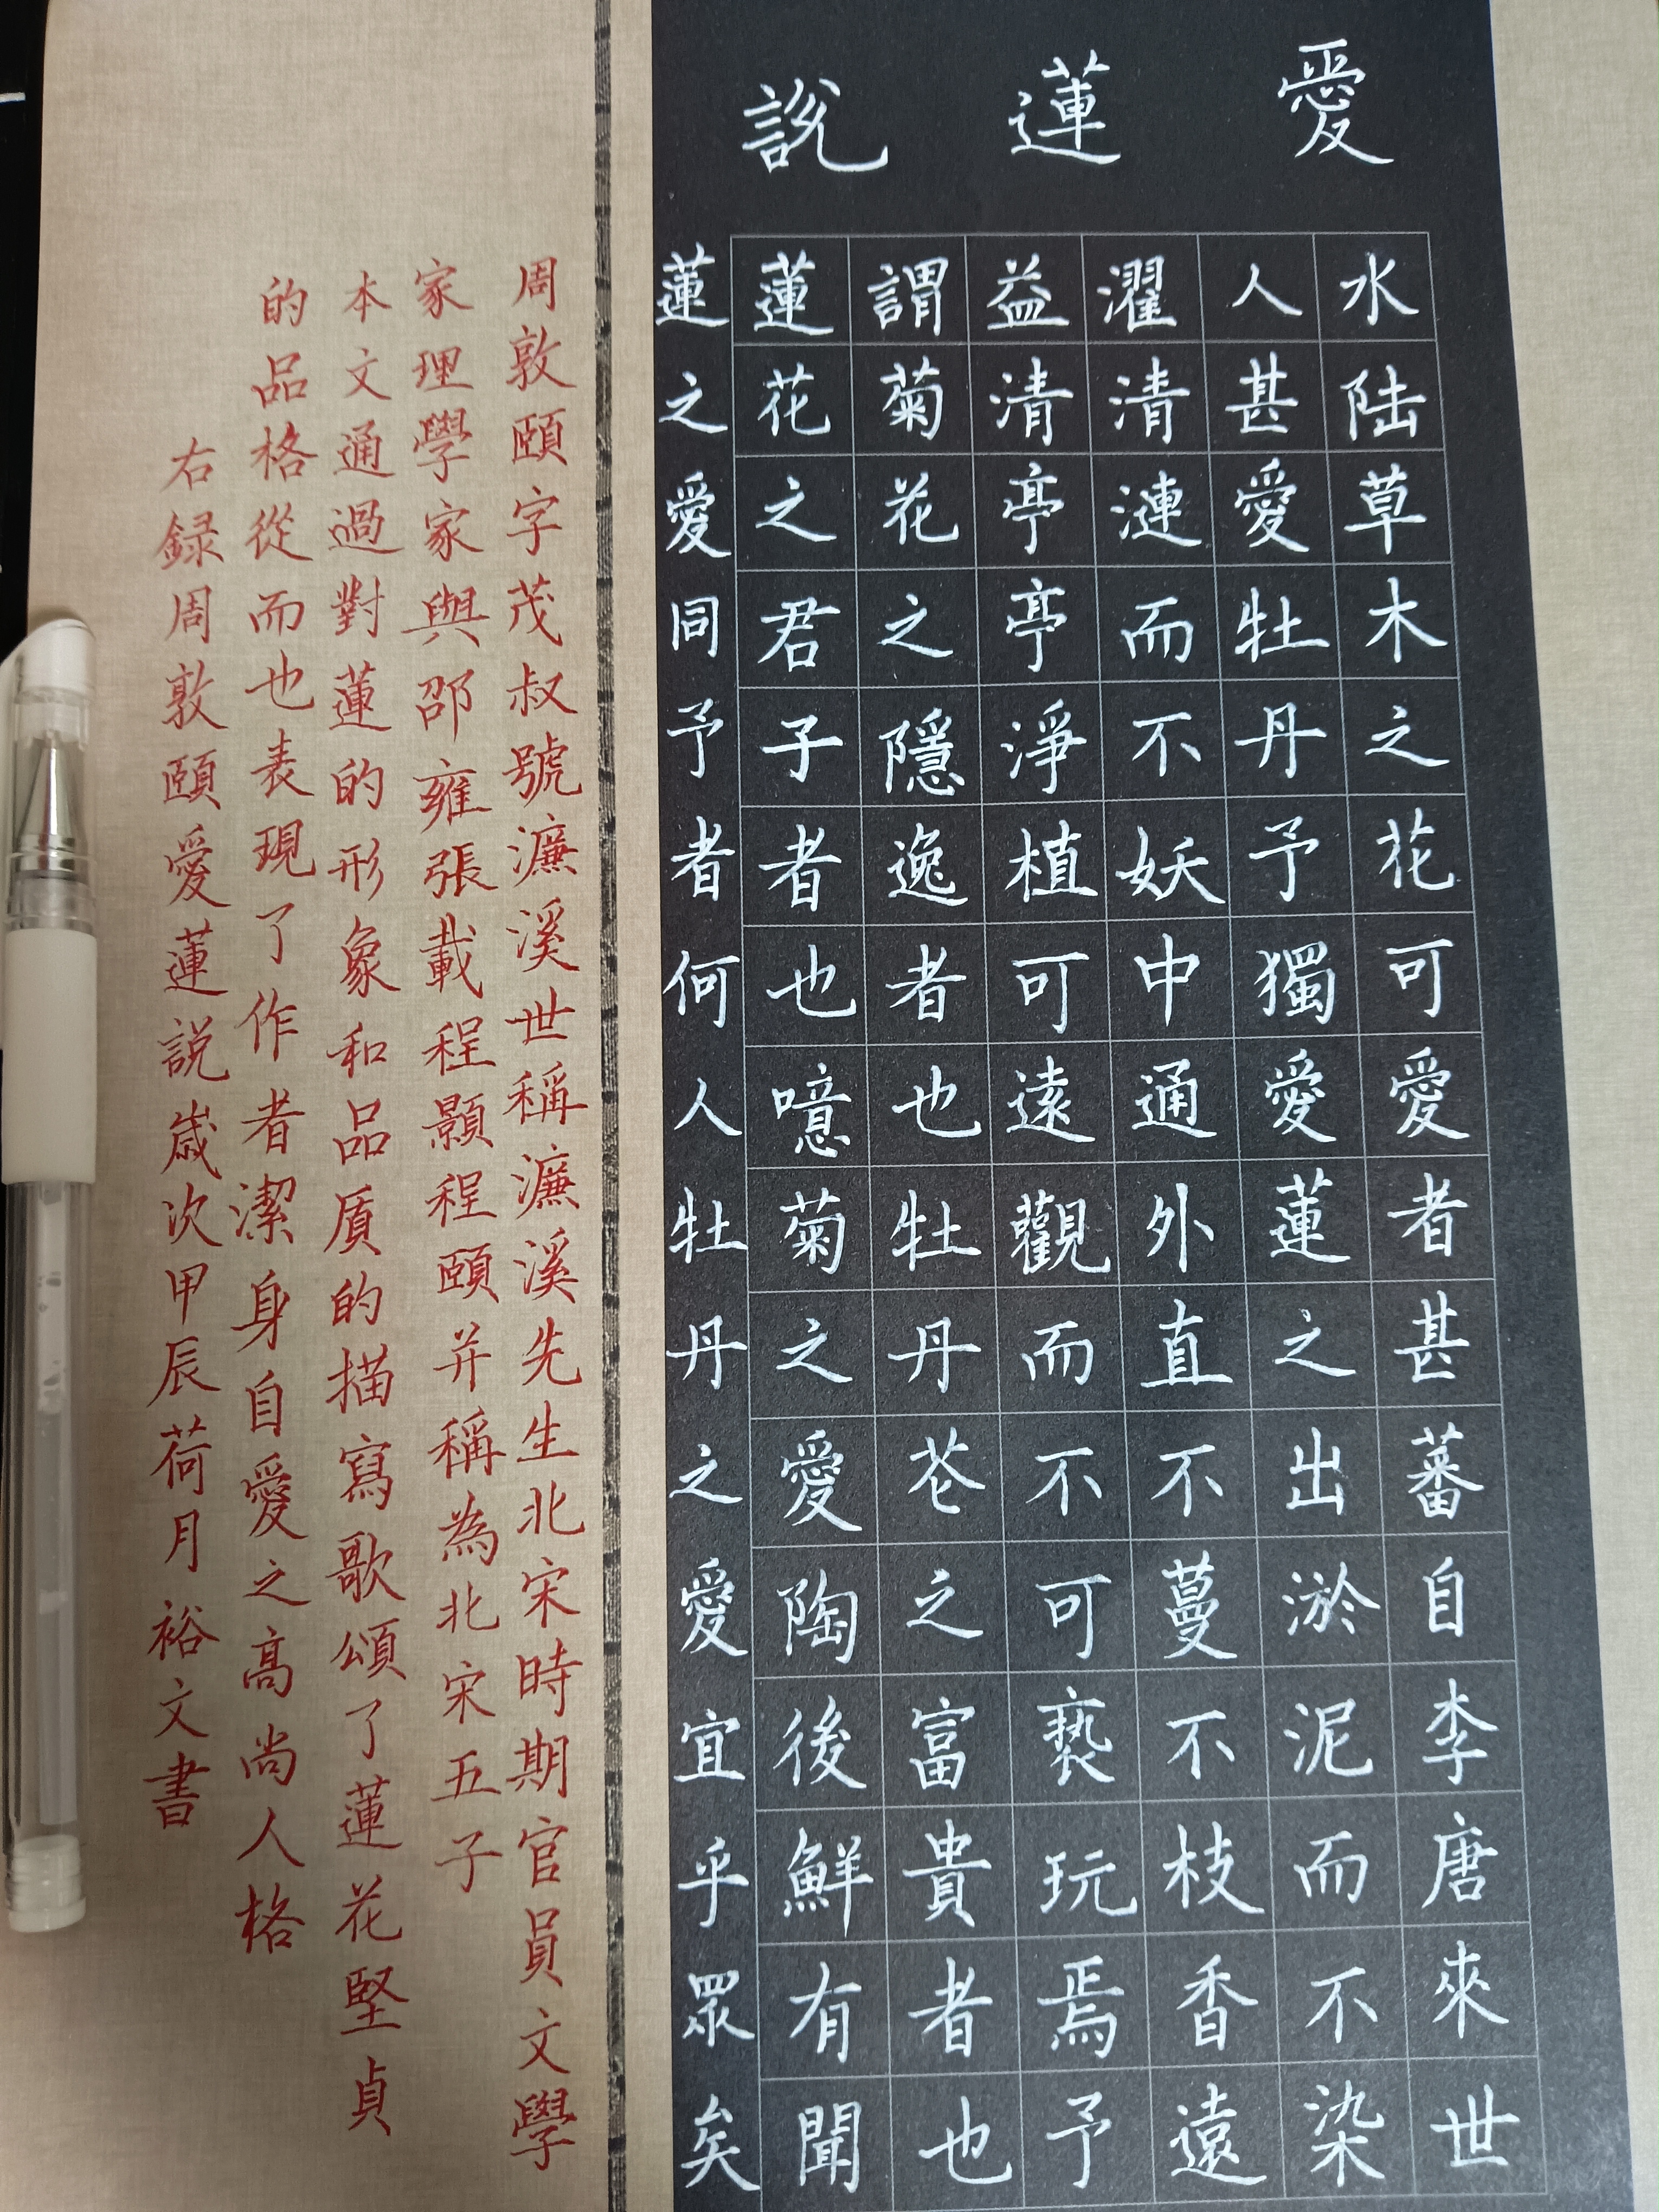 愛蓮說
水陆草木之花可愛者甚蕃自李唐來世
人甚愛牡丹予獨愛蓮之出淤泥而不染
濯清漣而不妖中通外直不蔓不枝香遠
益清亭亭淨植可遠觀而不可褻玩焉予
謂菊花之隱逸者也牡丹花之富貴者也
蓮花之君子者也噫菊之愛陶後鮮有聞
蓮之愛同予者何人牡丹之愛宜乎眾矣
周敦頤字茂叔號濂溪世稱濂溪先生北宋時期官員文學
家理學家與邵雍張載程顥程頤并稱為北宋五子
本文通過對蓮的形象和品質的描寫歌頌了蓮花堅貞
的品格從而也表現了作者潔身自愛之高尚人格
右録周敦頤愛蓮説歲次甲辰荷月裕文書